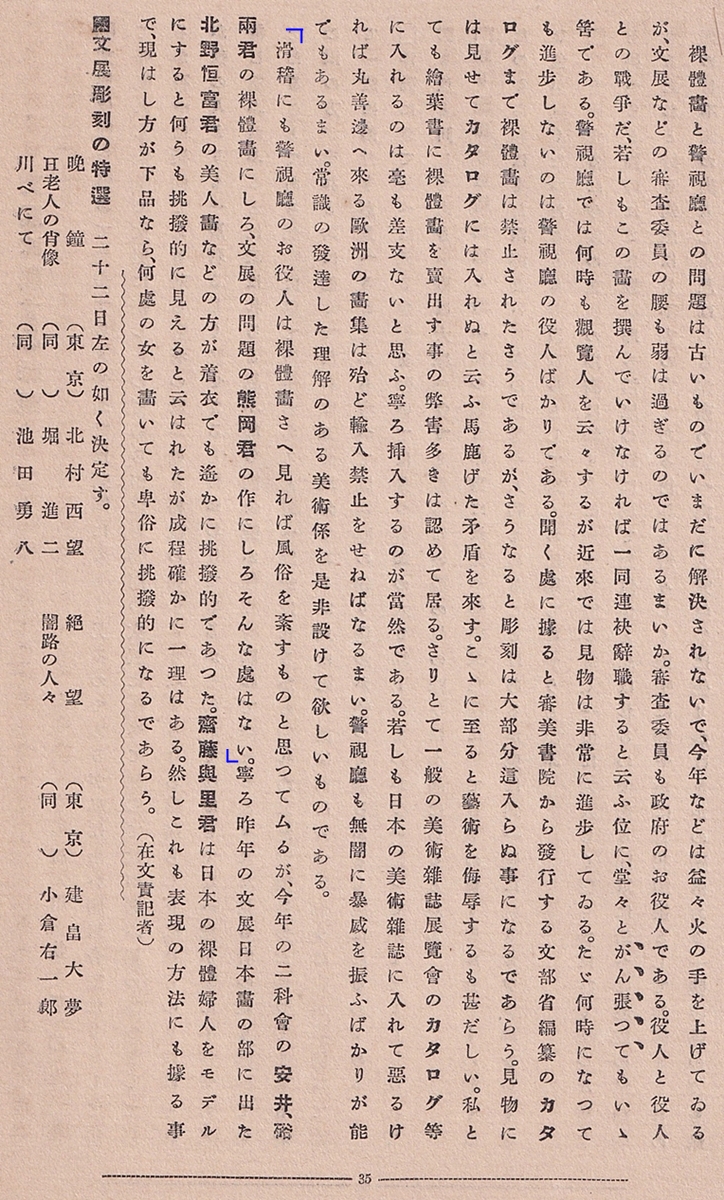 裸體畫と警視廳との問題は古いものでいまだに解決されないで、今年などは益々火の手を上げてゐる
が、文展などの審査委員の腰も弱は過ぎるのではあるまいか。審査委員も政府のお役人である。役人と役人
との戰爭だ、若しもこの畫を撰んでいけなければ一同連袂辭職すると云ふ位に、堂々とがん張つてもいゝ
筈である。警視廳では何時も觀覽人を云々するが近來では見物は非常に進步してゐる。たゞ何時になつて
も進步しないのは警視廳の役人ばかりである。聞く處に據ると審美書院から發行する文部省編纂のカタ
ログまで裸體畫は禁止されたさうであるが、さうなると彫刻は大部分這入らぬ事になるであらう。見物に
は見せてカタログには入れぬと云ふ馬鹿げた矛盾を來す。こゝに至ると藝術を侮辱するも甚だしい。私と
ても繪葉書に裸體畫を賣出す事の弊害多きは認めて居る。さりとて一般の美術雜誌展覽會のカタログ等
に入れるのは毫も差支ないと思ふ。寧ろ挿入するのが當然である。若しも日本の美術雜誌に入れて惡るけ
れば丸善邊へ來る歐洲の畫集は殆ど輸入禁止をせねばなるまい。警視廳も無闇に暴威を振ふばかりが能
でもあるまい。常識の發達した理解のある美術係を是非設けて欲しいものである。
滑稽にも警視廳のお役人は裸體畫さへ見れば風俗を紊すものと思つてムるが、今年の二科會の安井、
兩君の裸體畫にしろ、文展の問題の熊岡君の作にしろそんな處はない。寧ろ昨年の文展日本畫の部に出た
北野恒富君の美人畫などの方が着衣でも遙かに挑撥的であつた。齋藤與里君は日本の裸體婦人をモデル
にすると何うも挑撥的に見えると云はれたが成程確かに一理はある。然しこれも表現の方法にも據る事
で、現はし方が下品なら、何處の女を畫いても卑俗に挑撥的になるであらう。(在文責記者)
文展彫刻の特選 二十二日左の如く決定す。
晩鐘 (東京) 北村西望 絕望 (東京) 建畠大夢
H老人の肖像 (同) 堀進二 闇路の人々 (同) 小倉右一郞
川べにて (同) 池田勇八
35